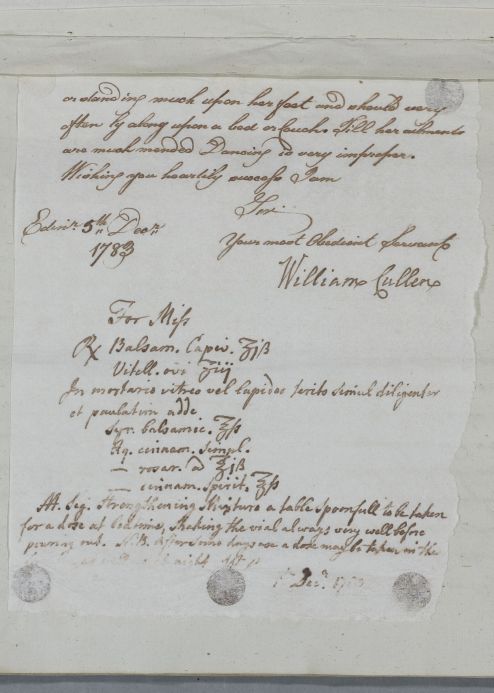 or standing much upon her feet and should very
often ly along upon a bed or Couch. Till her ailments
are much mended Dancing is very improper.
Wishing you heartily success I am
Sir
Edinr. 5th Decr.
1783
Your most Obedient Servant
William Cullen
For Miss
℞ Balsam. Capiv. ʒjß
Vitell. ovi ʒiij
In mortario vitreo vel lapideo terito simul diligenter
et paulatim adde
Syr. balsamic. ℥ß
Aq. cinnam. simpl.
— rosar. a ℥jß
— cinnam. spirit. ℥ß
M. Sig. Strengthening Mixture a table spoonfull to be taken
for a dose at bedtime, shaking the vial always very well before
pouring out. N.B. After some days use a dose may be taken in the
night
Decr. 1783